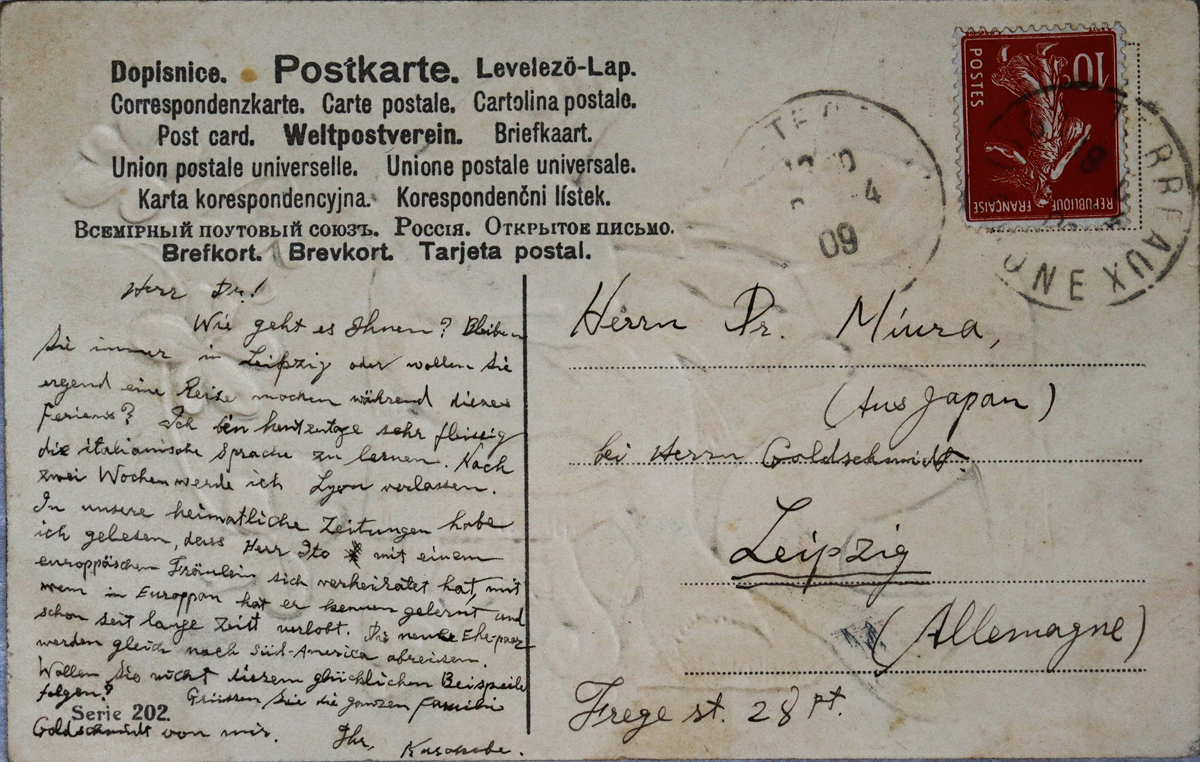 Dopisnice. Postkarte. Levelező-Lap.
Correspondenzkarte. Carte postale. Cartolina postale.
Post card. Weltpostverein. Briefkaart.
Union postale universelle. Unione postale universale.
Karta korespondencyjna. Korespondenčni lístek.
Всемірный поутовый союзъ. Россія. Открытое письмо.
Brefkort. Brevkort. Tarjeta postal.
10
POSTES
REPUBLIQUE FRANÇAISE
09
Herr Dr.!
Wie geht es Ihnen? Bleiben
Sie immer in Leipzig oder wollen Sie
ergend eine Reise machen während dieser
Feriens? Ich bin heutzutage sehr fleissig
die italiänische Sprache zu lernen. Nach
zwei Wochen werde ich Lyon verlassen.
In unsere heimatliche Zeitungen habe
ich gelesen, dass Herr Ito mit einem
europpäischen Fräulein sich verheiratet hat, mit
wem in Europpan hat er kennen gelernt und
schon seit lange Zeit verlobt. Die neue Ehepaar
werden gleich nach Süd-America abreisen.
Wollen Sie nicht diesem glücklichen Beispeile
folgen? Grüssen Sie die ganzen Familie
Goldschmidt von mir. Ihr,
Serie 202.
Herrn Dr. Miura,
(Aus Japan)
bei Herrn Goldschmidt.
Leipzig
(Allemagne)
Frege st. 28 pt.